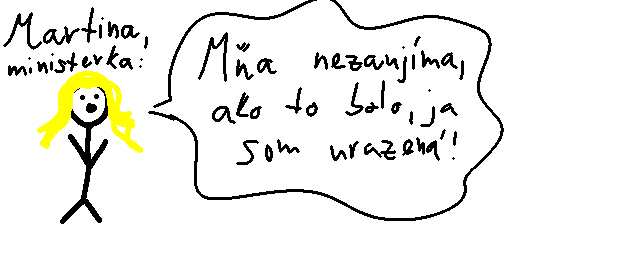 Martina,
ministerka:
Mňa nezaujíma,
ako to bolo, ja
som urazená!